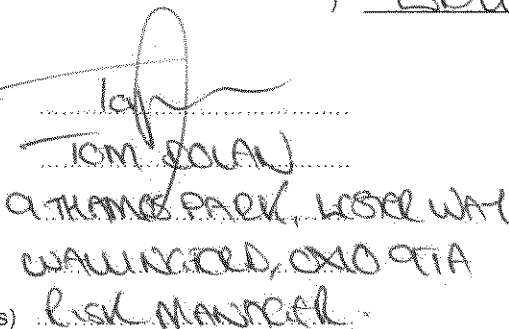 TOM DOLAN
9 THAMES PARK, LESTER WAY
WALLINGFORD, OX10 9TA
s) RISK MANAGER